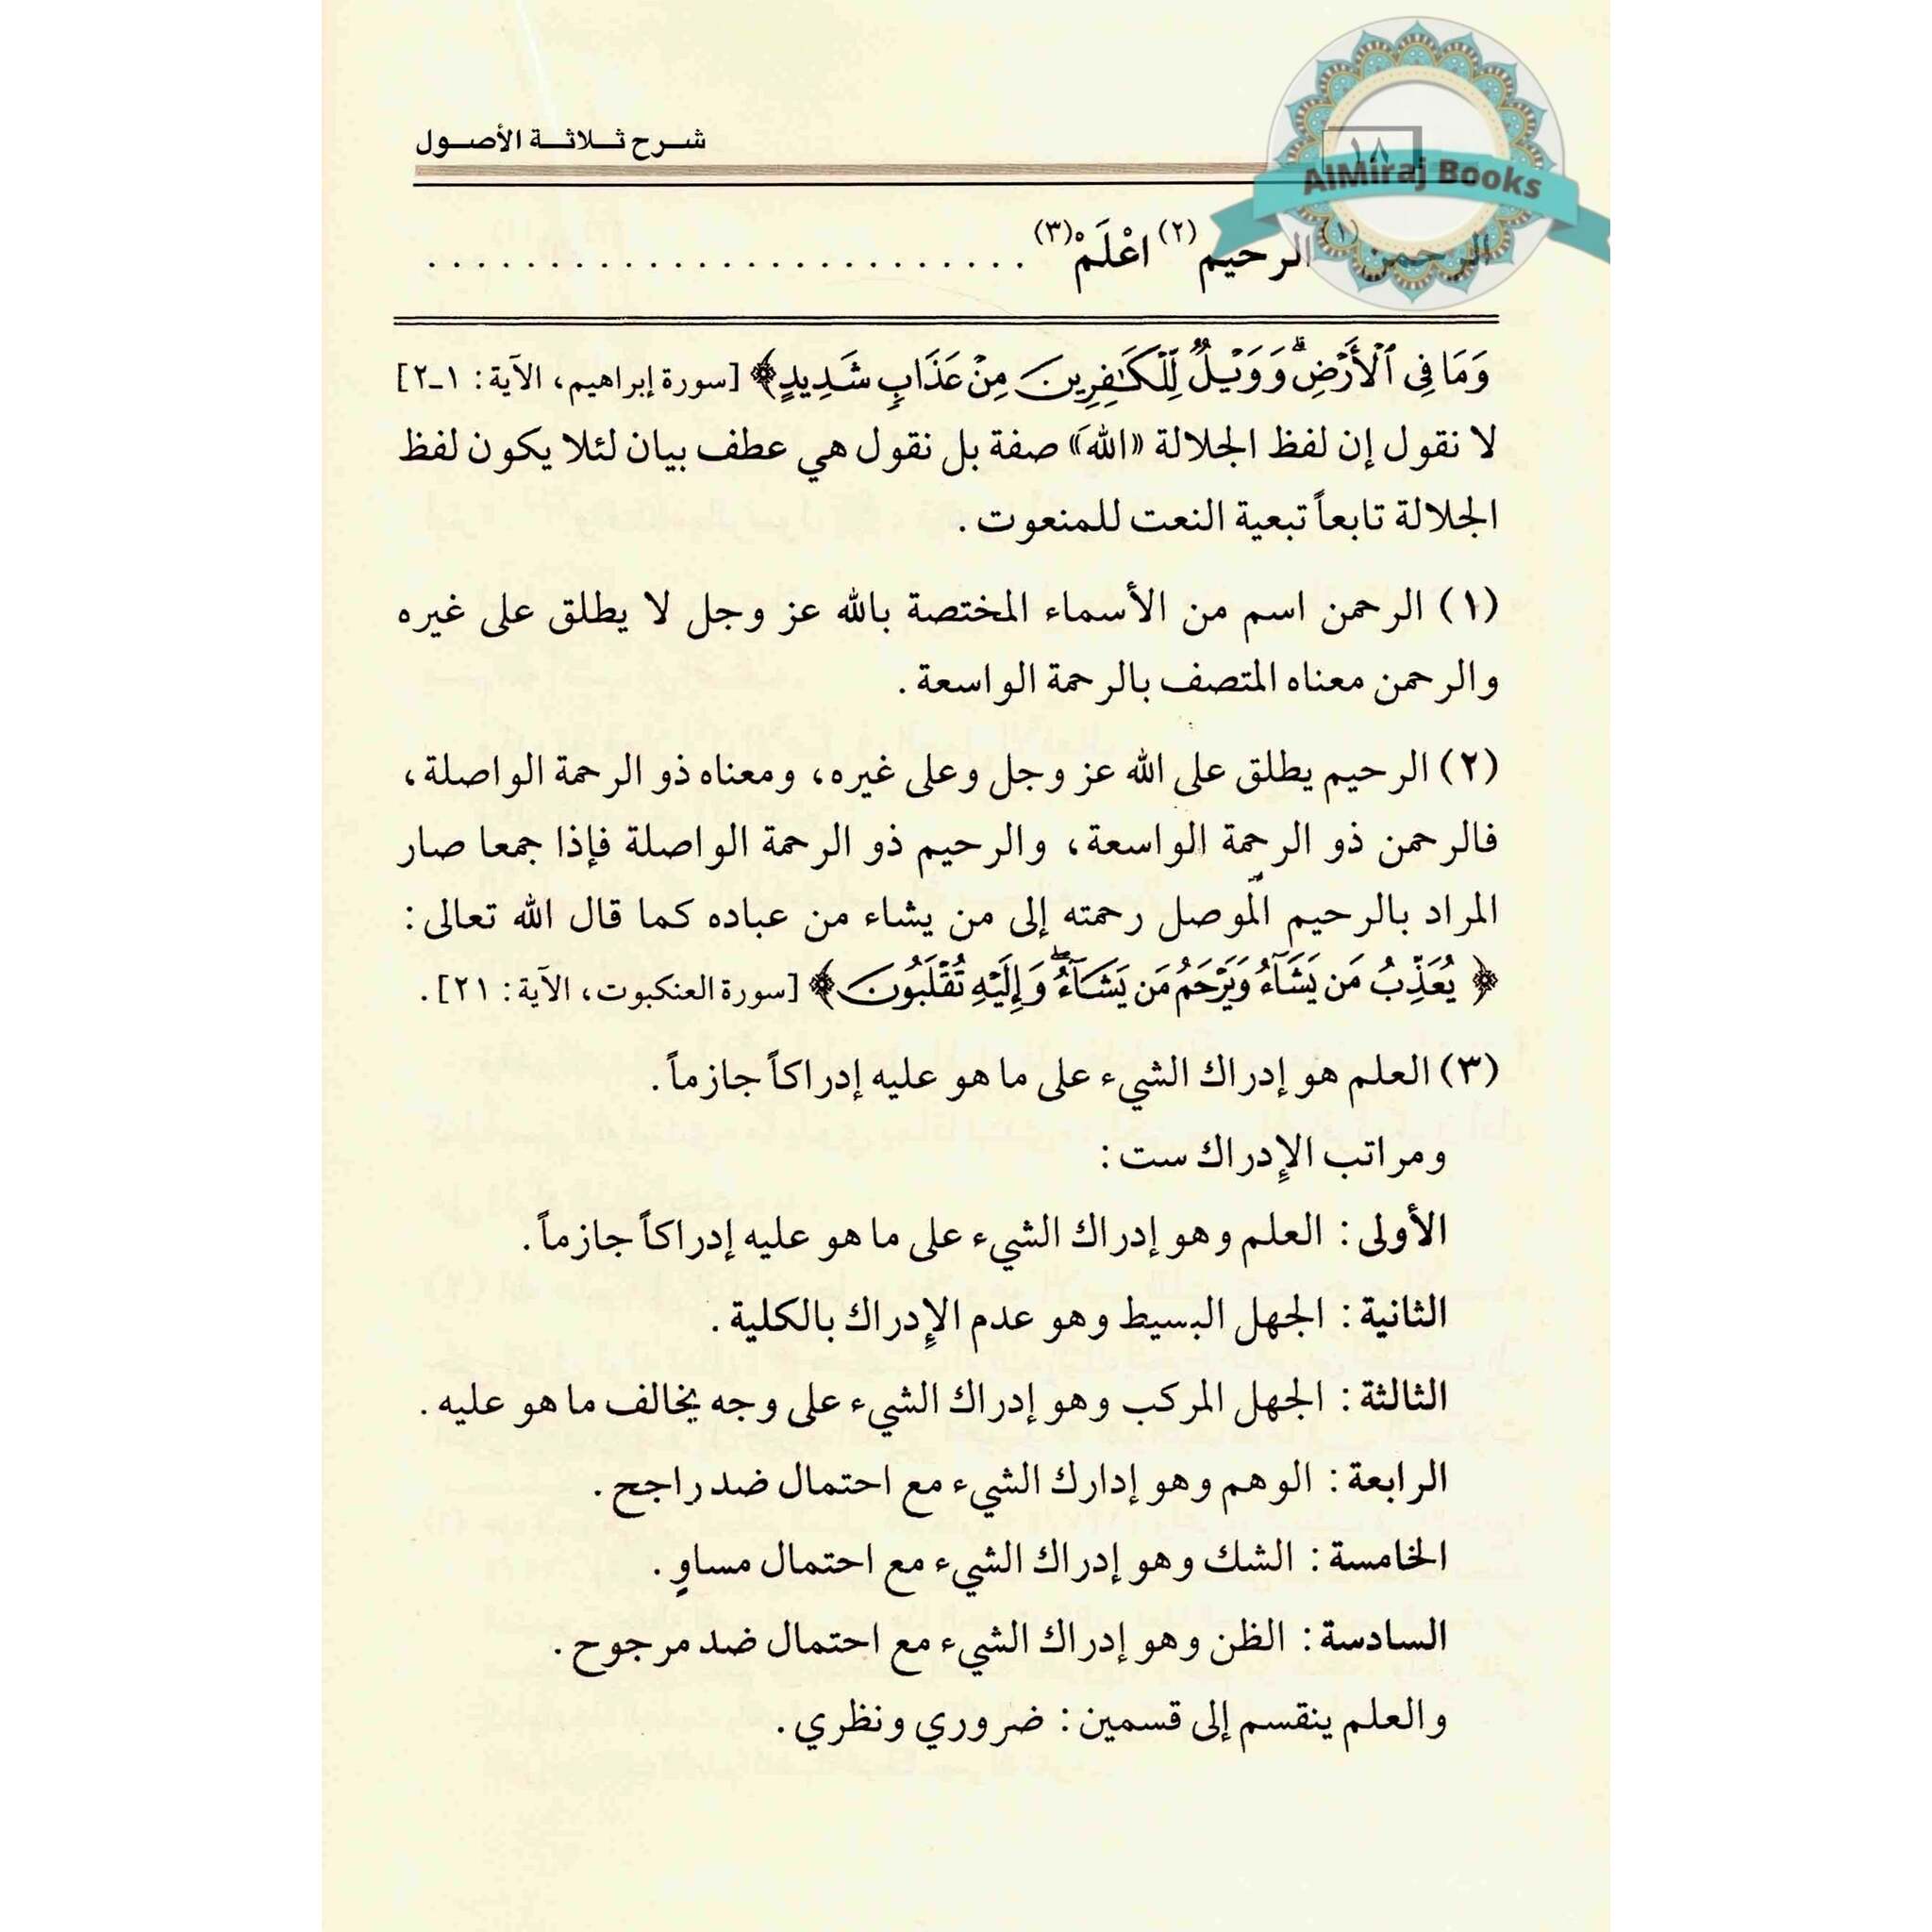 شرح ثلاثة الأصول
١٨
AlMiraj Books
الرحمن (١) الرحيم (٢) اعْلَمْ (٣) . . . . . . . . . . . . . . . . . . . . . . . . .
وَمَا فِي ٱلْأَرْضِۗ وَوَيْلٌ لِّلْكَٰفِرِينَ مِنْ عَذَابٍ شَدِيدٍ﴾ [سورة إبراهيم، الآية: ١-٢]
لا نقول إن لفظ الجلالة «الله» صفة بل نقول هي عطف بيان لئلا يكون لفظ
الجلالة تابعاً تبعية النعت للمنعوت.
(١) الرحمن اسم من الأسماء المختصة بالله عز وجل لا يطلق على غيره
والرحمن معناه المتصف بالرحمة الواسعة.
(٢) الرحيم يطلق على الله عز وجل وعلى غيره، ومعناه ذو الرحمة الواصلة،
فالرحمن ذو الرحمة الواسعة، والرحيم ذو الرحمة الواصلة فإذا جمعا صار
المراد بالرحيم الموصل رحمته إلى من يشاء من عباده كما قال الله تعالى:
﴿يُعَذِّبُ مَن يَشَآءُ وَيَرْحَمُ مَن يَشَآءُۖ وَإِلَيْهِ تُقْلَبُونَ﴾ [سورة العنكبوت، الآية: ٢١].
(٣) العلم هو إدراك الشيء على ما هو عليه إدراكاً جازماً.
ومراتب الإِدراك ست:
الأولى: العلم وهو إدراك الشيء على ما هو عليه إدراكاً جازماً.
الثانية: الجهل البسيط وهو عدم الإِدراك بالكلية.
الثالثة: الجهل المركب وهو إدراك الشيء على وجه يخالف ما هو عليه.
الرابعة: الوهم وهو إدارك الشيء مع احتمال ضد راجح.
الخامسة: الشك وهو إدراك الشيء مع احتمال مساوٍ.
السادسة: الظن وهو إدراك الشيء مع احتمال ضد مرجوح.
والعلم ينقسم إلى قسمين: ضروري ونظري.